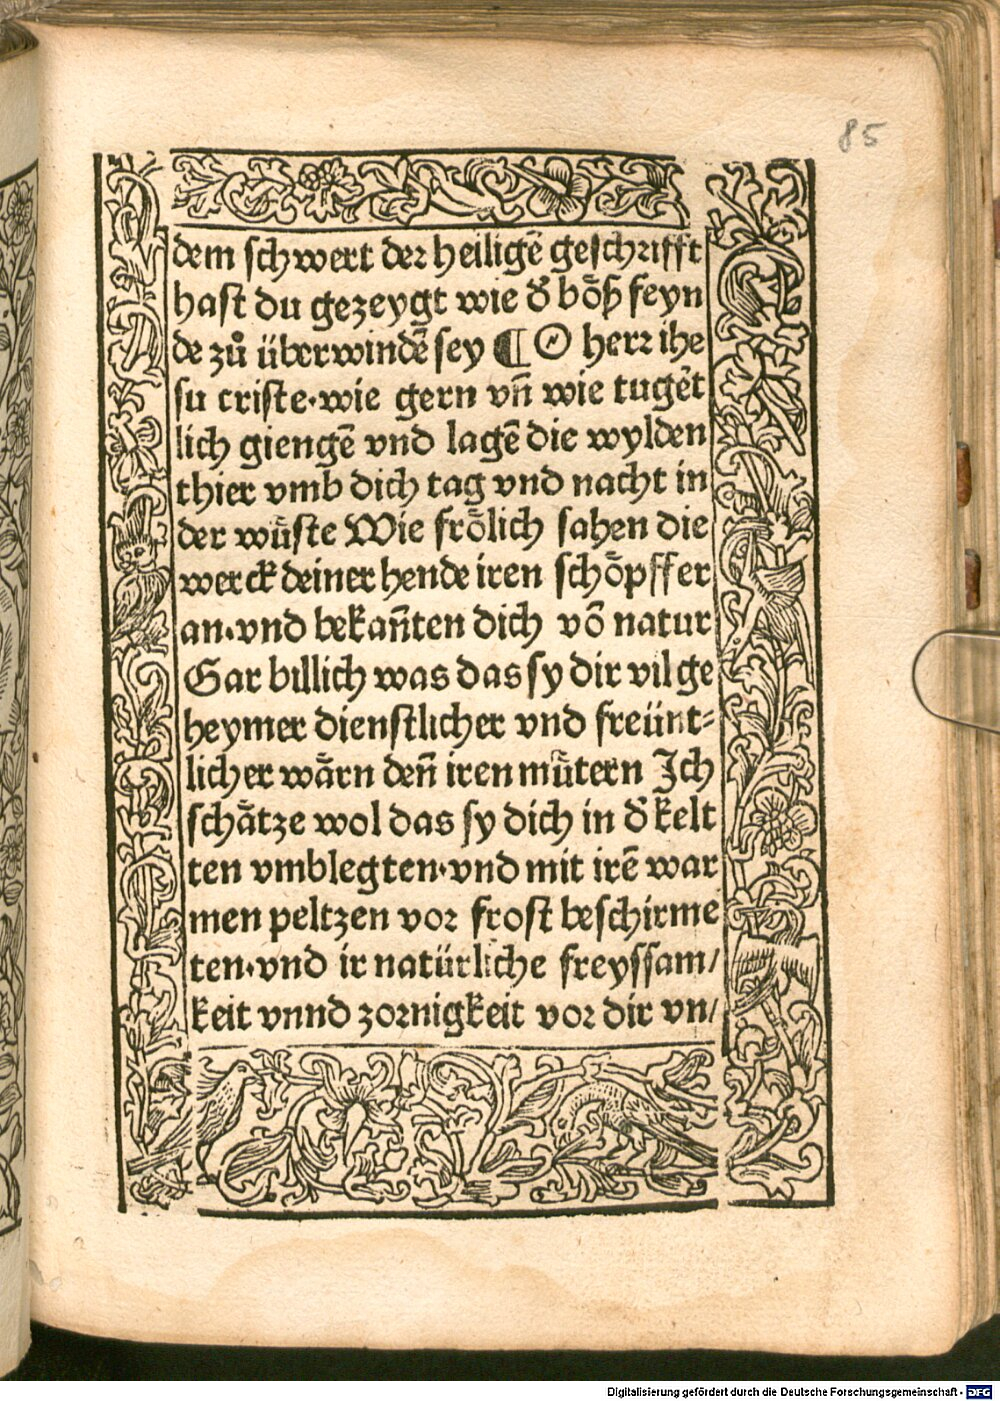 85
dem schwert der heiligē geschrifft
hast du gezeygt wie d̄ bȫß feyn
de zů überwindē sey ¶ O herr ihe
su criste·wie gern vn̄ wie tugēt
lich giengē vnd lagē die wylden
thier vmb dich tag vnd nacht in
der wůste Wie frölich sahen die
werck deiner hende iren schöpffer
an·vnd bekan̄ten dich vō natur
Gar billich was das sy dir vil ge
heymer dienstlicher vnd freünt⸗
licher wärn den̄ iren můtern Ich
schätze wol das sy dich in d̄ kelt
ten vmblegten·vnd mit irē war
men peltzen vor frost beschirme
ten·vnd ir natürliche freyssam/
keit vnnd zornigkeit vor dir vn/
Digitalisierung gefördert durch die Deutsche Forschungsgemeinschaft - DFG